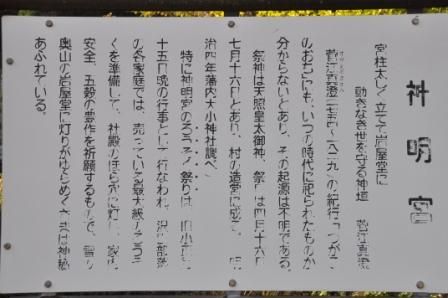 神明宮
宮柱太しく立てて岩屋堂に
動きなき世を守る神垣　菅江真澄
菅江真澄(一七五四～一八二九)の紀行「つがろ
のおち」にも、いつの時代に祀られたものか
分からないとあり、その起源は不明である。
祭神は天照皇太御神、祭日は四月十六日
七月十六日とあり、村の造営に成る。明
治四年藩内大小神社調べ
特に神明宮のろうそく祭りは、旧小正月
十五日晩の行事として行なわれ、沢田部落
の各家庭では、売っている最大級のろうそ
くを準備して、社殿のほら穴に灯し、家内
安全、五穀の豊作を祈願するもので、雪の
奥山の岩屋堂に灯りがゆらめくさまは神秘
あふれている。